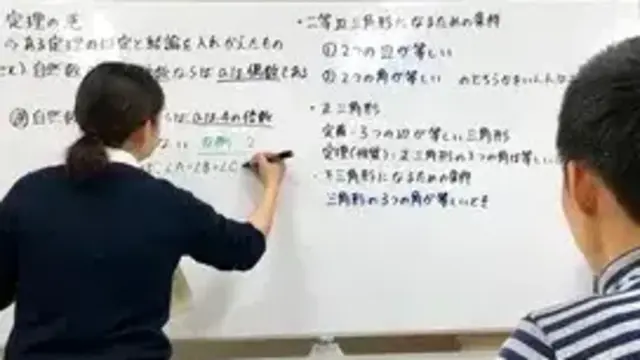 定理の逆
ある定理の仮定と結論を入れかえたもの
自然数 ならば aは偶数である
自然数 らば aは4の倍数
ない 反例 2
∠A=∠B=∠C
・二等辺三角形になるための条件
①2つの辺が等しい
②2つの角が等しい のどちらかをいえれば
・正三角形
定義:3つの辺が等しい三角形
定理(性質):正三角形の3つの角は等しい
・正三角形になるための条件
三角形の3つの角が等しいとき